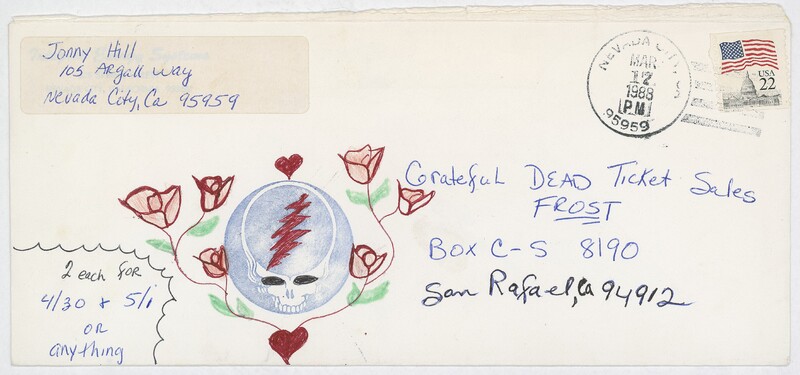 Jonny Hill
105 Argall Way
Nevada City, Ca 95959
NEVADA CITY, C
MAR
17
1988
P.M.
95959
USA
22
Grateful DEAD Ticket Sales
FROST
BOX C-S 8190
San Rafael, Ca 94912
2 each for
4/30 & 5/1
OR
anything